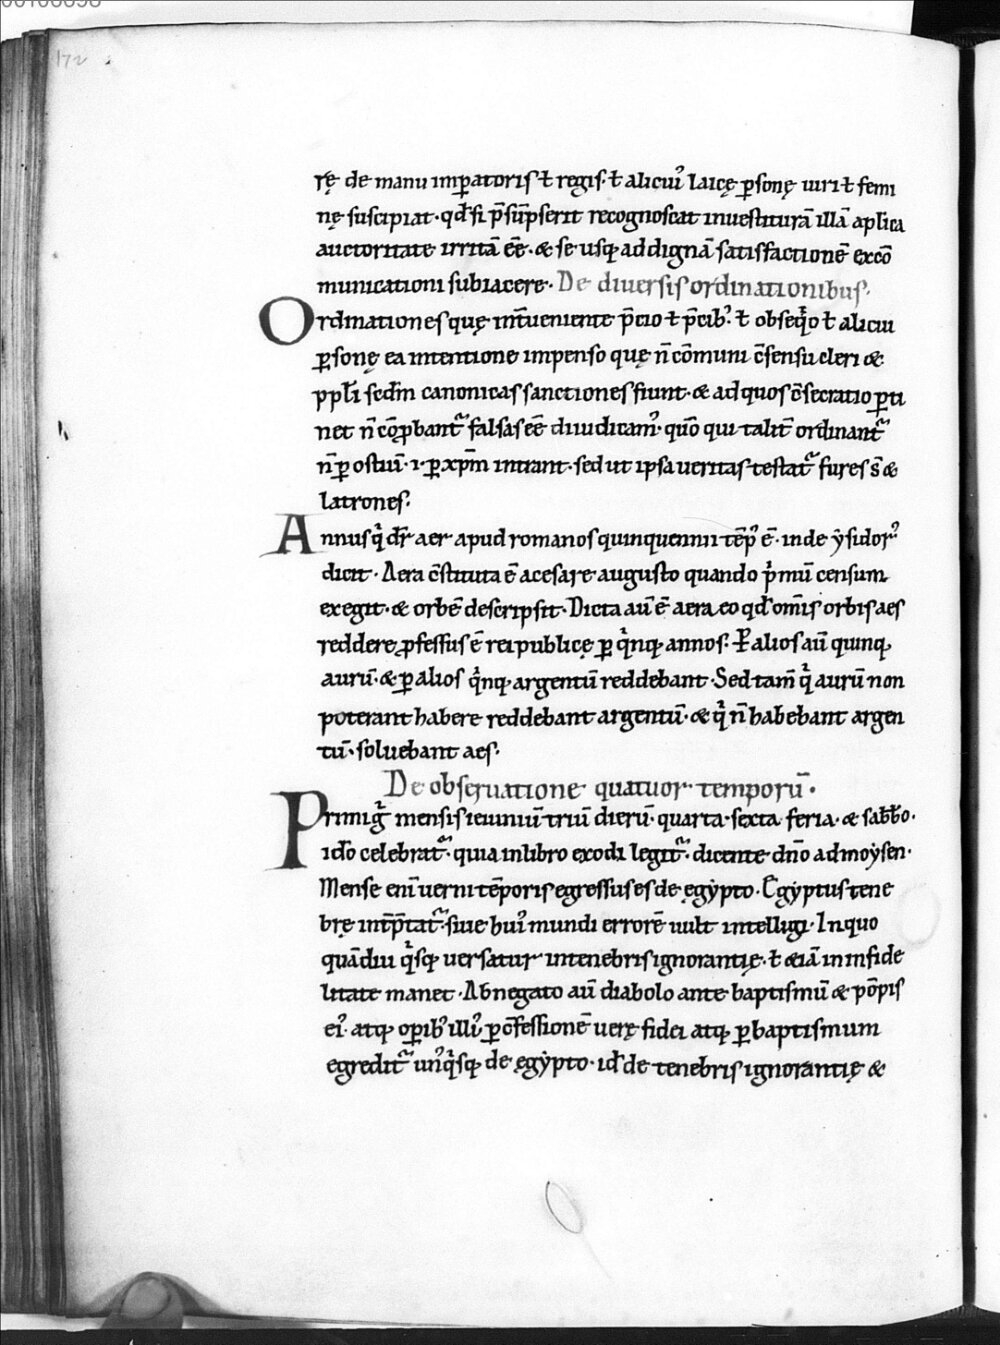 172
rę de manu imꝑatoris ɫ regis· ɫ alicuiꝰ laicę ꝑsonę uiri ɫ femi
nę suscipiat· qđ si p̄sūpserit recognoscat inuestiturā illā aplica
auctoritate irritā eē· & se usq; ad dignā satisfactionē excō
municationi subiacere· De diuersis ordinationibus·
Ordinationes quę int̄ueniente p̄cio ɫ p̄cibꝰ· ɫ obseq̊o ɫ alicui
ꝑsonę ea intentione impenso quę n̄ cōmuni c̄sensu cleri &
ppłi sedm̄ canonicas sanctiones fiunt· & ad quos c̄secratio ꝑti
net n̄ cōꝓbantᷣ falsas eē diiudicamꝰ· qūo qui talit̄ ordinantᷣ
n̄ ꝑ ostiū· i· ꝑ xp̄m intrant· sed ut ipsa ueritas testatᷣ fures s̄ &
latrones·
Annus qͥ dr̄ aer apud romanos quinquennii tēpꝰ ē· inde ẏsidorꝰ
dicit· Aera c̄stituta ē a cesare augusto quando pͥmū censum
exegit· & orbē descripsit· Dicta aū ē aera eo qđ om̄is orbis aes
reddere ꝓfessus ē rei publicę ꝑ qͥnq; annos· Ꝑ alios aū quinq;
aurū· & ꝑ alios qͥnq; argentū reddebant· Sed tam̄ qͥ aurū non
poterant habere reddebant argentū· & qͥ n̄ habebant argen
tū· soluebant aes·
De obseruatione quatuor temporū·
Primig̊ mensis ieiuniū triū dierū· quarta· sexta feria· & sabb̄o·
iđo celebratᷣ· quia in libro exodi legitᷣ· dicente dn̄o ad moẏsen·
Mense enī uerni tēporis egressus es de ęgẏpto· Egẏptus tene
brę int̄p̄tatᷣ· siue huiꝰ mundi errorē uult intelligi· In quo
quādiu qͥsq; uersatur in tenebris ignorantię· ɫ &iā in infide
litate manet· Abnegato aū diabolo ante baptismū & pōpis
eiꝰ atq; oꝑibꝰ illiꝰ ꝑ c̄fessionē uerę fidei atq; ꝑ baptismum
egreditᷣ unꝰqͥsq; de ęgẏpto· iđ de tenebris ignorantię &